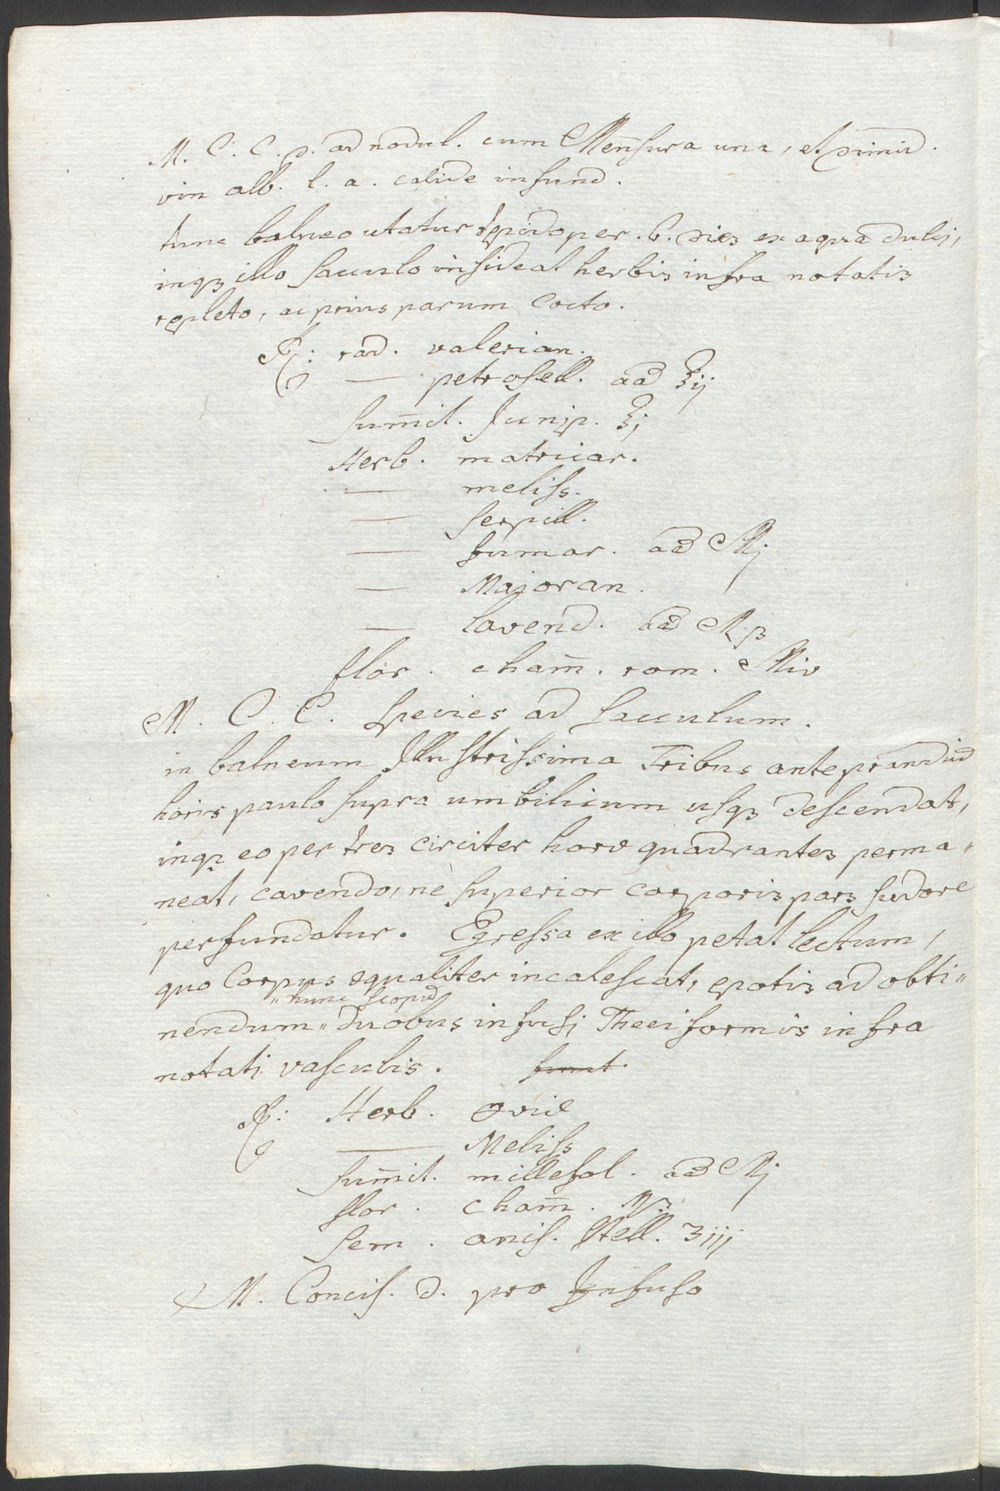 M. C. C. D. ad nodul. cum Mensura una, et dimid.
vin alb. l. a. calide infund.
tunc balneo utatur tepido per .6. dies ex aqua dulci,
inqz illo sacculo insideat herbis infra notatis
repleto, ac prius parum cocto.
Rp: rad. valerian.
— petrosell. aa ℥ij
summit. Junip. ℥j
Herb. matricar.
— meliss.
— serpill.
— fumar. aa Mj
— Majoran.
— lavend. aa M ß
flor. cham̄. rom. Miv
M. C. C. species ad sacculum.
in balneum Illustrissima Tribus ante prandiū
horis paulo supra umbilicum usqz descendat,
inqz eo per tres circiter horæ quadrantes perma„
neat, cavendo, nè superior corporis pars sudore
perfundatur. Egressa ex illo petat lectum,
quo Corpus equaliter incalescat, epotis ad obti„
„hunc scopum
nendum „ duobus infusi Theeiformis infra
notati vasculis. sumt.
Rp: Herb.
— Meliss
sum̄it. millefol. aa Mj
flor. cham̄. Mß
Sem. anis. stell. ʒiij
M. Concis. d. pro Infuso